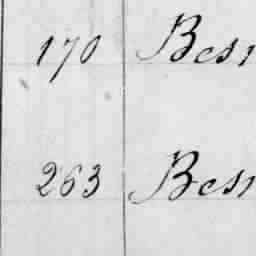 170 Bes
263 Bes